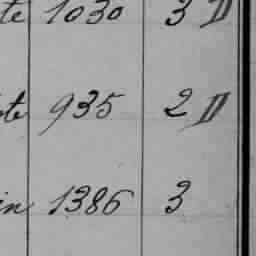 te 1030 3 D
te 935 2 D
in 1386 3